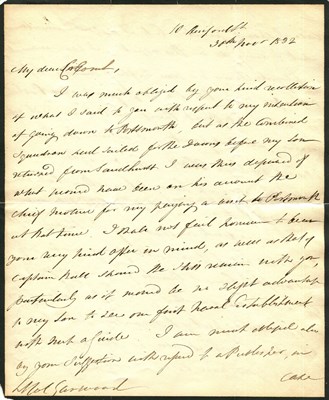 30th Nov 1832
My dear
I was much obliged by your kind recollection
of what I said to you with respect to my intention
of going down to Portsmouth, but as the combined
Squadron had sailed for the Downs before my son
returned from Sandhurst I was thus deprived of
what would have been on his account the
chief motive for my paying a visit to Portsmouth
at that time. I shall not fail however to bear
your very kind offer in mind, as well as that of
Captain should he still remain with you
particularly as it would be an advantage
to my son to see our first Naval establishment
with such a Guide. I am much obliged also
by your suggestion with regard to a Publisher, in
case